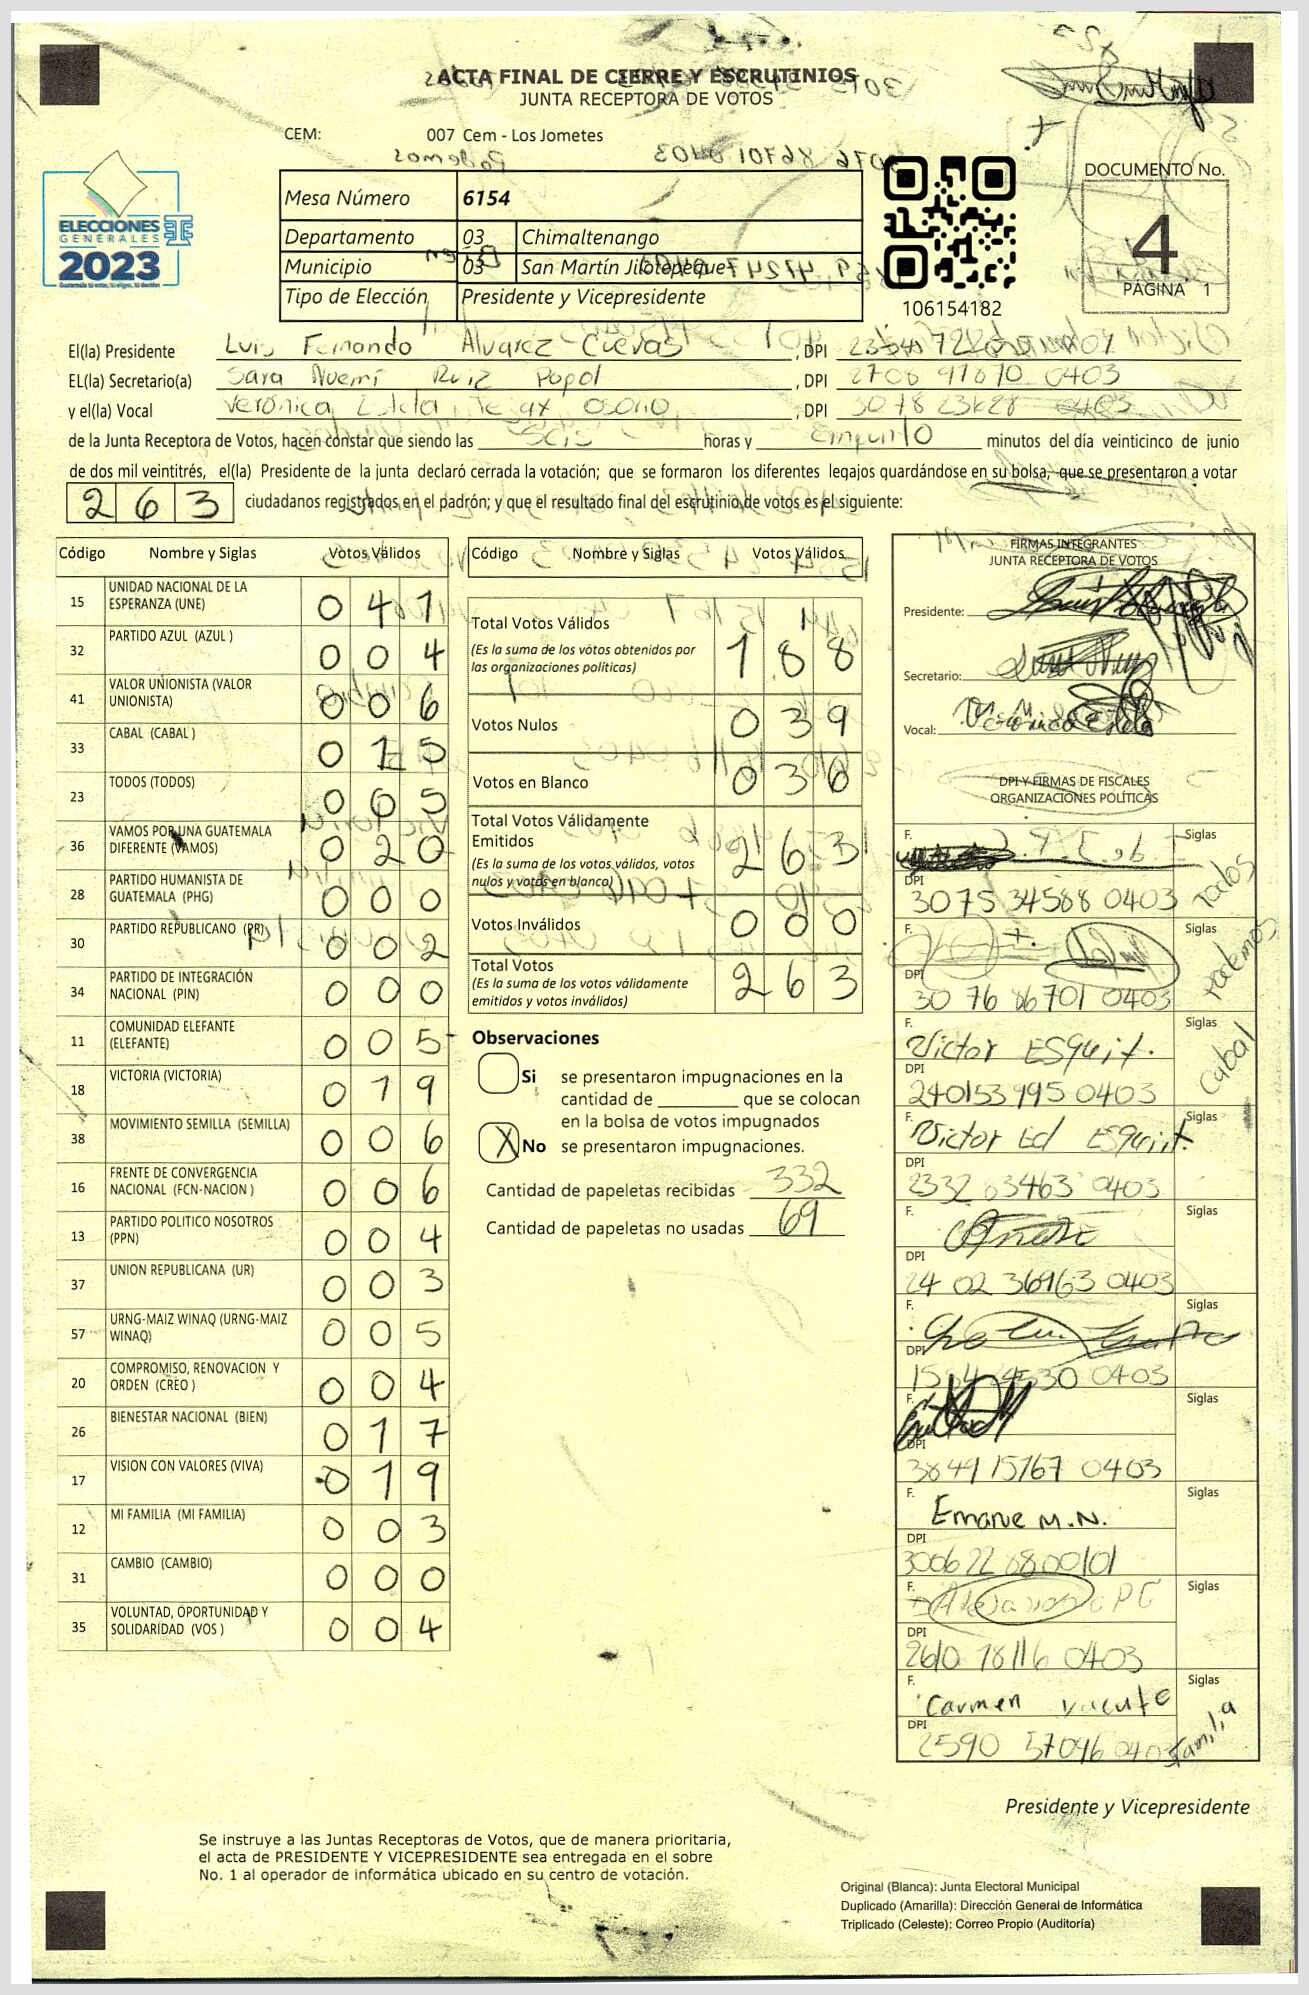 ACTA FINAL DE CIERRE Y ESCRUTINIOS
JUNTA RECEPTORA DE VOTOS
CEM: 007 Cem - Los Jometes
ELECCIONES
GENERALES
2023
Mesa Número 6154
Departamento 03 Chimaltenango
Municipio 03 San Martín Jilotepeque
Tipo de Elección Presidente y Vicepresidente
106154182
DOCUMENTO No.
4
PÁGINA 1
El(la) Presidente Luis Fernando Alvarez Cuevas, DPI
EL(la) Secretario(a) Sara Nuemi Ruiz Popol, DPI 2708 97870 0403
y el(la) Vocal Verónica, DPI 3078 23628 0403
de la Junta Receptora de Votos, hacen constar que siendo las Seis horas y En punto minutos del día veinticinco de junio
de dos mil veintitrés, el(la) Presidente de la junta declaró cerrada la votación; que se formaron los diferentes legajos guardándose en su bolsa, que se presentaron a votar
263 ciudadanos registrados en el padrón; y que el resultado final del escrutinio de votos es el siguiente:
Código Nombre y Siglas Votos Válidos
15 UNIDAD NACIONAL DE LA ESPERANZA (UNE) 041
32 PARTIDO AZUL (AZUL ) 004
41 VALOR UNIONISTA (VALOR UNIONISTA) 006
33 CABAL (CABAL ) 015
23 TODOS (TODOS) 005
36 VAMOS POR UNA GUATEMALA DIFERENTE (VAMOS) 020
28 PARTIDO HUMANISTA DE GUATEMALA (PHG) 000
30 PARTIDO REPUBLICANO (PR) 002
34 PARTIDO DE INTEGRACIÓN NACIONAL (PIN) 000
11 COMUNIDAD ELEFANTE (ELEFANTE) 005
18 VICTORIA (VICTORIA) 019
38 MOVIMIENTO SEMILLA (SEMILLA) 006
16 FRENTE DE CONVERGENCIA NACIONAL (FCN-NACION ) 006
13 PARTIDO POLITICO NOSOTROS (PPN) 004
37 UNION REPUBLICANA (UR) 003
57 URNG-MAIZ WINAQ (URNG-MAIZ WINAQ) 005
20 COMPROMISO, RENOVACION Y ORDEN (CREO ) 004
26 BIENESTAR NACIONAL (BIEN) 017
17 VISION CON VALORES (VIVA) 019
12 MI FAMILIA (MI FAMILIA) 003
31 CAMBIO (CAMBIO) 000
35 VOLUNTAD, OPORTUNIDAD Y SOLIDARIDAD (VOS ) 004
Código Nombre y Siglas Votos Válidos
Total Votos Válidos 188
(Es la suma de los votos obtenidos por
las organizaciones políticas)
Votos Nulos 039
Votos en Blanco 036
Total Votos Válidamente
Emitidos 263
(Es la suma de los votos válidos, votos
nulos y votos en blanco)
Votos Inválidos 000
Total Votos 263
(Es la suma de los votos válidamente
emitidos y votos inválidos)
Observaciones
Si se presentaron impugnaciones en la
cantidad de ________ que se colocan
en la bolsa de votos impugnados
X No se presentaron impugnaciones.
Cantidad de papeletas recibidas 332
Cantidad de papeletas no usadas 69
FIRMAS INTEGRANTES
JUNTA RECEPTORA DE VOTOS
Presidente:
Secretario:
Vocal:
DPI Y FIRMAS DE FISCALES
ORGANIZACIONES POLÍTICAS
F. Siglas Todos
DPI 3075 34588 0403
F. Siglas Podemos
DPI 3076 86701 0403
F. Victor ESquit. Siglas Cabal
DPI 2401 53995 0403
F. Victor Ed ESquit. Siglas
DPI 2332 63463 0403
F. Siglas
DPI 2402 36963 0403
F. Siglas
DPI 0403
F.
DPI 3849 15767 0403
F. Emanue M.N. Siglas
DPI 3006 22 68 0 0101
F. Siglas
DPI 2610 18116 0403
F. Carmen Siglas Familia
DPI 2590 57096 0403
Presidente y Vicepresidente
Se instruye a las Juntas Receptoras de Votos, que de manera prioritaria,
el acta de PRESIDENTE Y VICEPRESIDENTE sea entregada en el sobre
No. 1 al operador de informática ubicado en su centro de votación.
Original (Blanca): Junta Electoral Municipal
Duplicado (Amarilla): Dirección General de Informática
Triplicado (Celeste): Correo Propio (Auditoría)